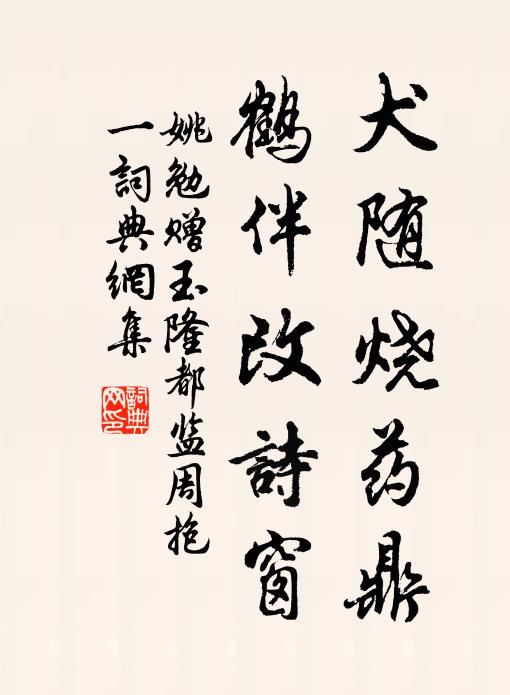 犬随烧药鼎
鹤伴改詩窗
姚勉赠玉隆都监周抱
一詞典網集
詞典网印